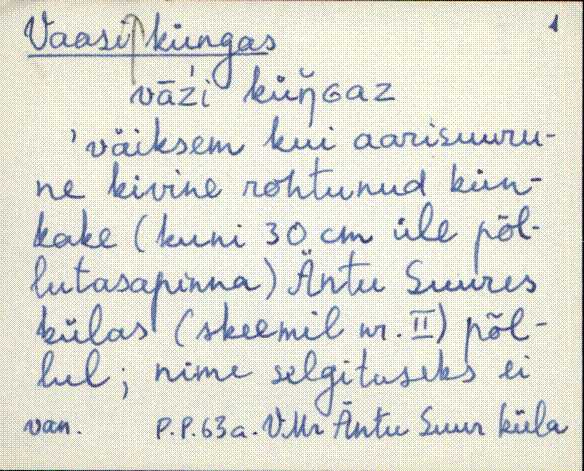 Vaasi küngas 1
vāźi küŋ̆ɢaz
'väiksem kui aarisuuru-
ne kivine rohtunud kün-
kake (kuni 30 cm üle põl-
lutasapinna) Äntu Suures
külas (skeemil nr. II) põl-
lul; nime selgituseks ei
van. P.P.63a. V.Mr Äntu Suur küla